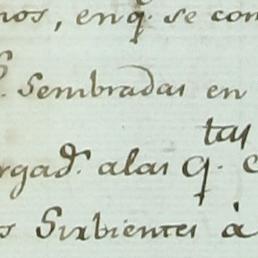 nos, en q.e se con
s. Sembradas en
tas
rgad.s a las q.
s Sirbientes à